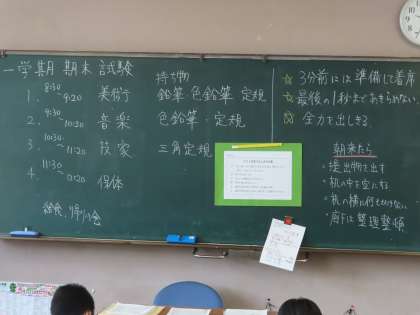 一学期 期末 試験
持ち物
1. 8:30〜9:20 美術 鉛筆 色鉛筆 定規
2. 9:30〜10:20 音楽 色鉛筆・定規
3. 10:30〜11:20 技家 三角定規
4. 11:30〜12:20 保体
給食、帰りの会
☆ 3分前には準備して着席
☆ 最後の1秒まであきらめない
☆ 全力を出しきる
朝来たら
・提出物を出す
・机の中を空にする
・机の横に何もかけない
・廊下は整理整頓